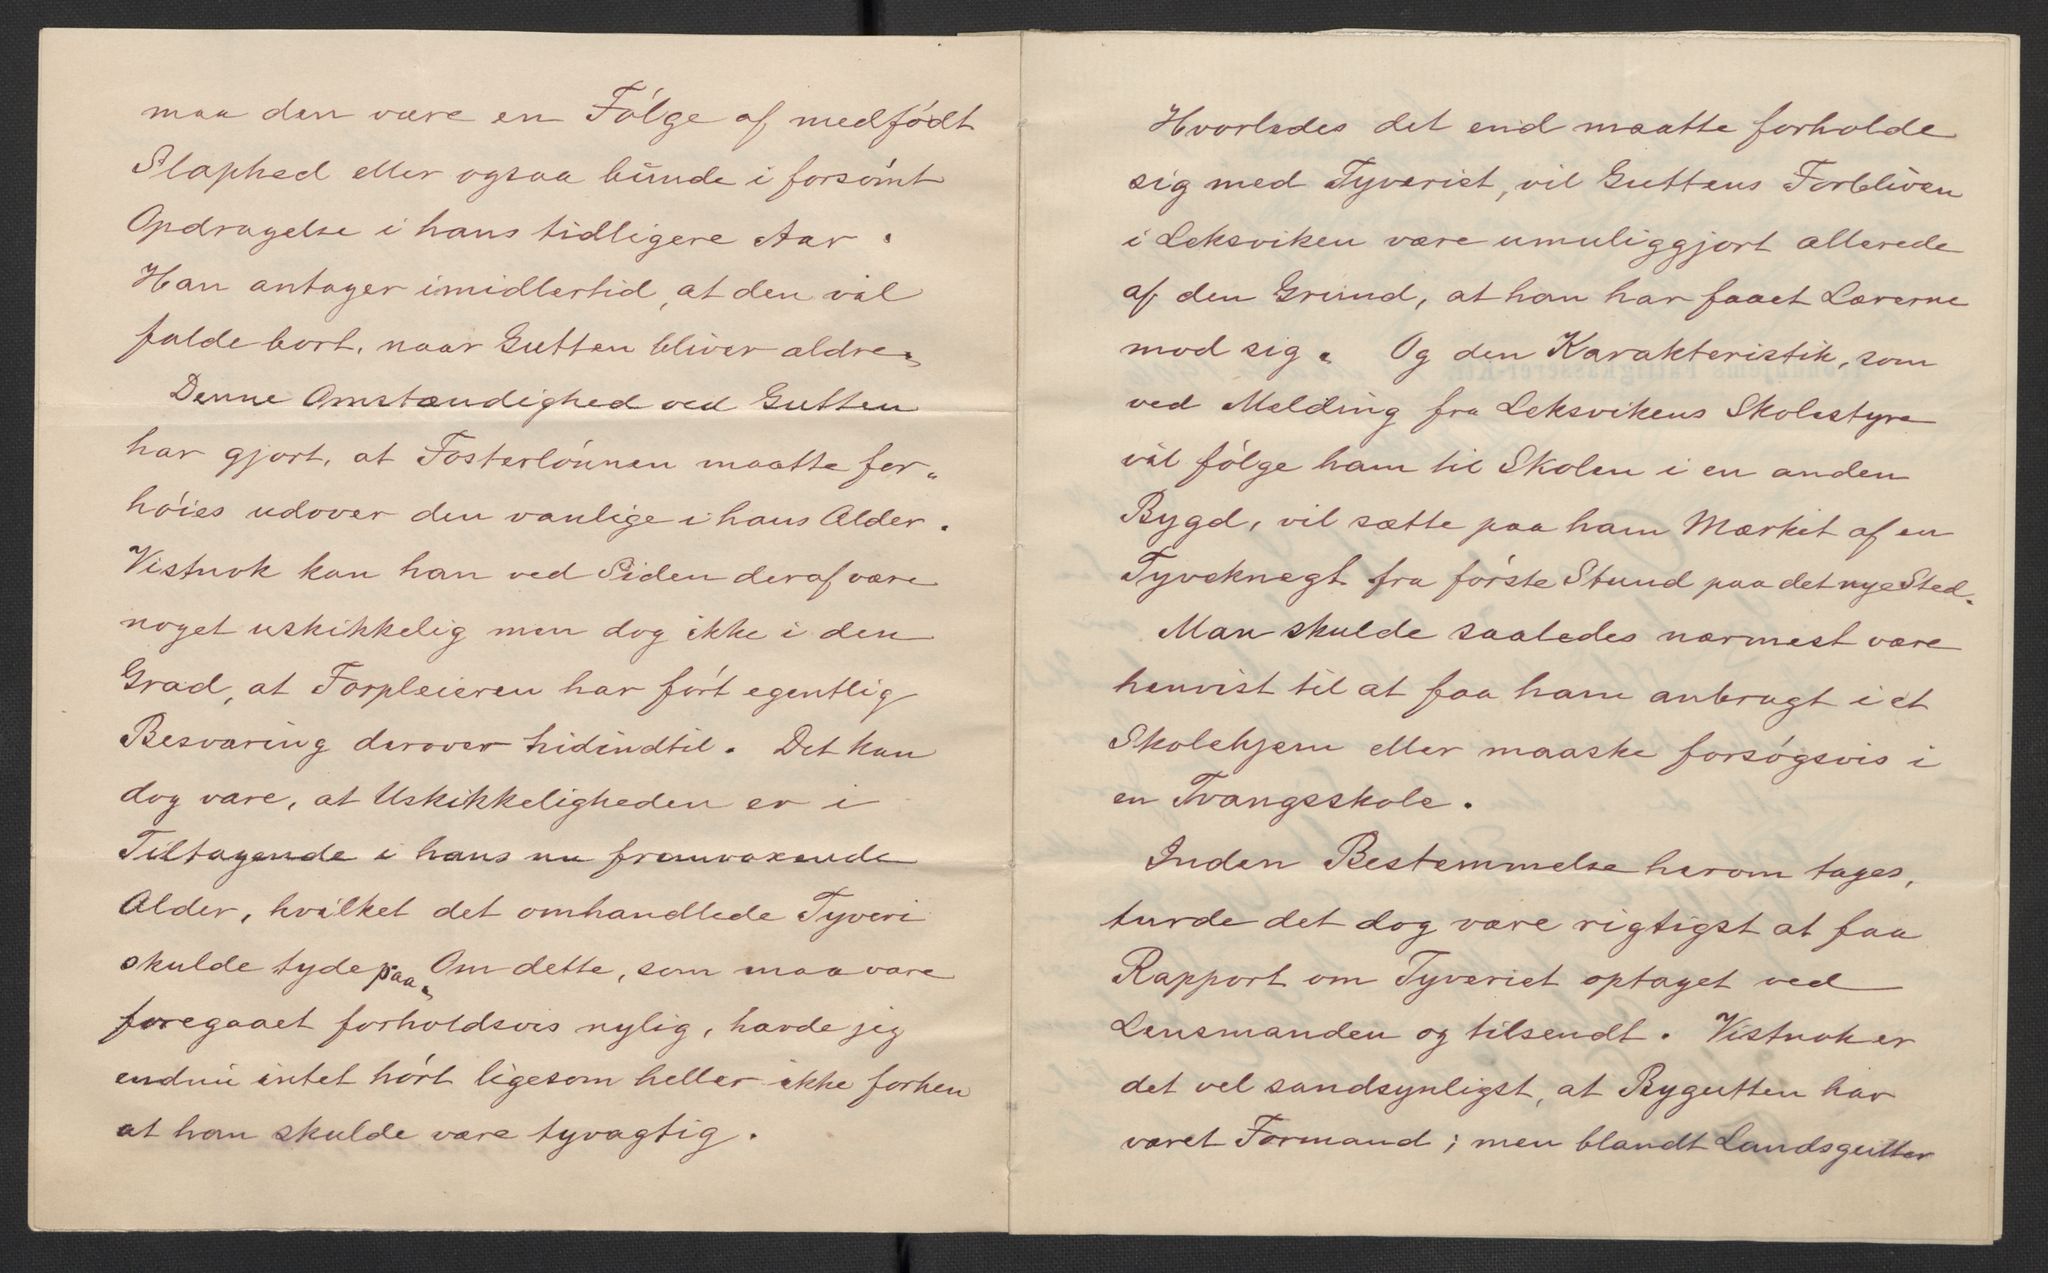 maa den være en Følge af medfødt
Slaphed eller ogsaa bunde i forsømt
Opdragelse i hans tidligere Aar.
Han antager imidlertid, at den vil
falde bort, naar Gutten bliver ældre.
Denne Omstændighed ved Gutten
har gjort, at Fosterlønnen maatte for„
høies udover den vanlige i hans Alder.
Vistnok kan han ved Siden deraf være
noget uskikkelig men dog ikke i den
Grad, at Forpleieren har ført egentlig
Besværing derover hidindtil. Det kan
dog være, at Uskikkeligheden er i
Tiltagende i hans nu fremvoxende
Alder, hvilket det omhandlede Tyveri
skulde tyde paa. Om dette, som maa være
foregaaet forholdsvis nylig, havde jeg
endnu intet hørt ligesom heller ikke forhen
at han skulde være tyvagtig.
Hvorledes det end maatte forholde
sig med Tyveriet, vil Guttens Forbliven
i Leksviken være umuliggjort allerede
af den Grund, at han har faaet Lærerne
mod sig. Og den Karakteristik, som
ved Melding fra Leksvikens Skolestyre
vil følge ham til Skolen i en anden
Bygd, vil sætte paa ham Mærket af en
Tyveknegt fra første Stund paa det nye Sted.
Man skulde saaledes nærmest være
henvist til at faa ham anbragt i et
Skolehjem eller maaske forsøgsvis i
en Tvangsskole.
Inden Bestemmelse herom tages,
turde det dog være rigtigst at faa
Rapport om Tyveriet optaget ved
Lensmanden og tilsendt. Vistnok er
det vel sandsynligst, at Bygutten har
været Formand; men blandt Landsgutter